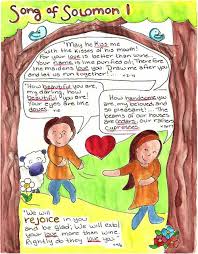 Song of Solomon 1
"May he kiss me
with the kisses of his mouth!
For your love is better than wine...
Your name is like purified oil; Therefore
the maidens love you. Draw me after you
and let us run together!"
How beautiful
you are,
my darling, how
beautiful you are!
Your eyes are like
doves
How handsome you
are, my beloved,
and so
pleasant!... The
beams of our houses
are cedars, our rafters
cypresses
"We will
rejoice in you
and be glad; We will extol
your love more than wine.
Rightly do they love you."